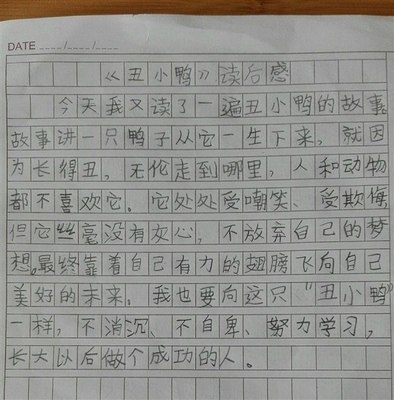 DATE ____/____/____
《丑小鸭》读后感
今天我又读了一遍丑小鸭的故事。
故事讲一只鸭子从它一生下来，就因
为长得丑，无伦走到哪里，人和动物
都不喜欢它。它处处受嘲笑、受欺侮
但它丝毫没有灰心，不放弃自己的梦
想。最终靠着自己有力的翅膀飞向自己
美好的未来。我也要向这只“丑小鸭”
一样，不消沉、不自卑、努力学习，
长大以后做个成功的人。